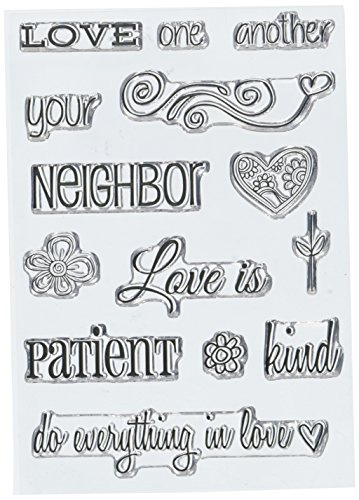 LOVE one another
your
NEIGHBOR
Love is
PATIENT kind
do everything in love